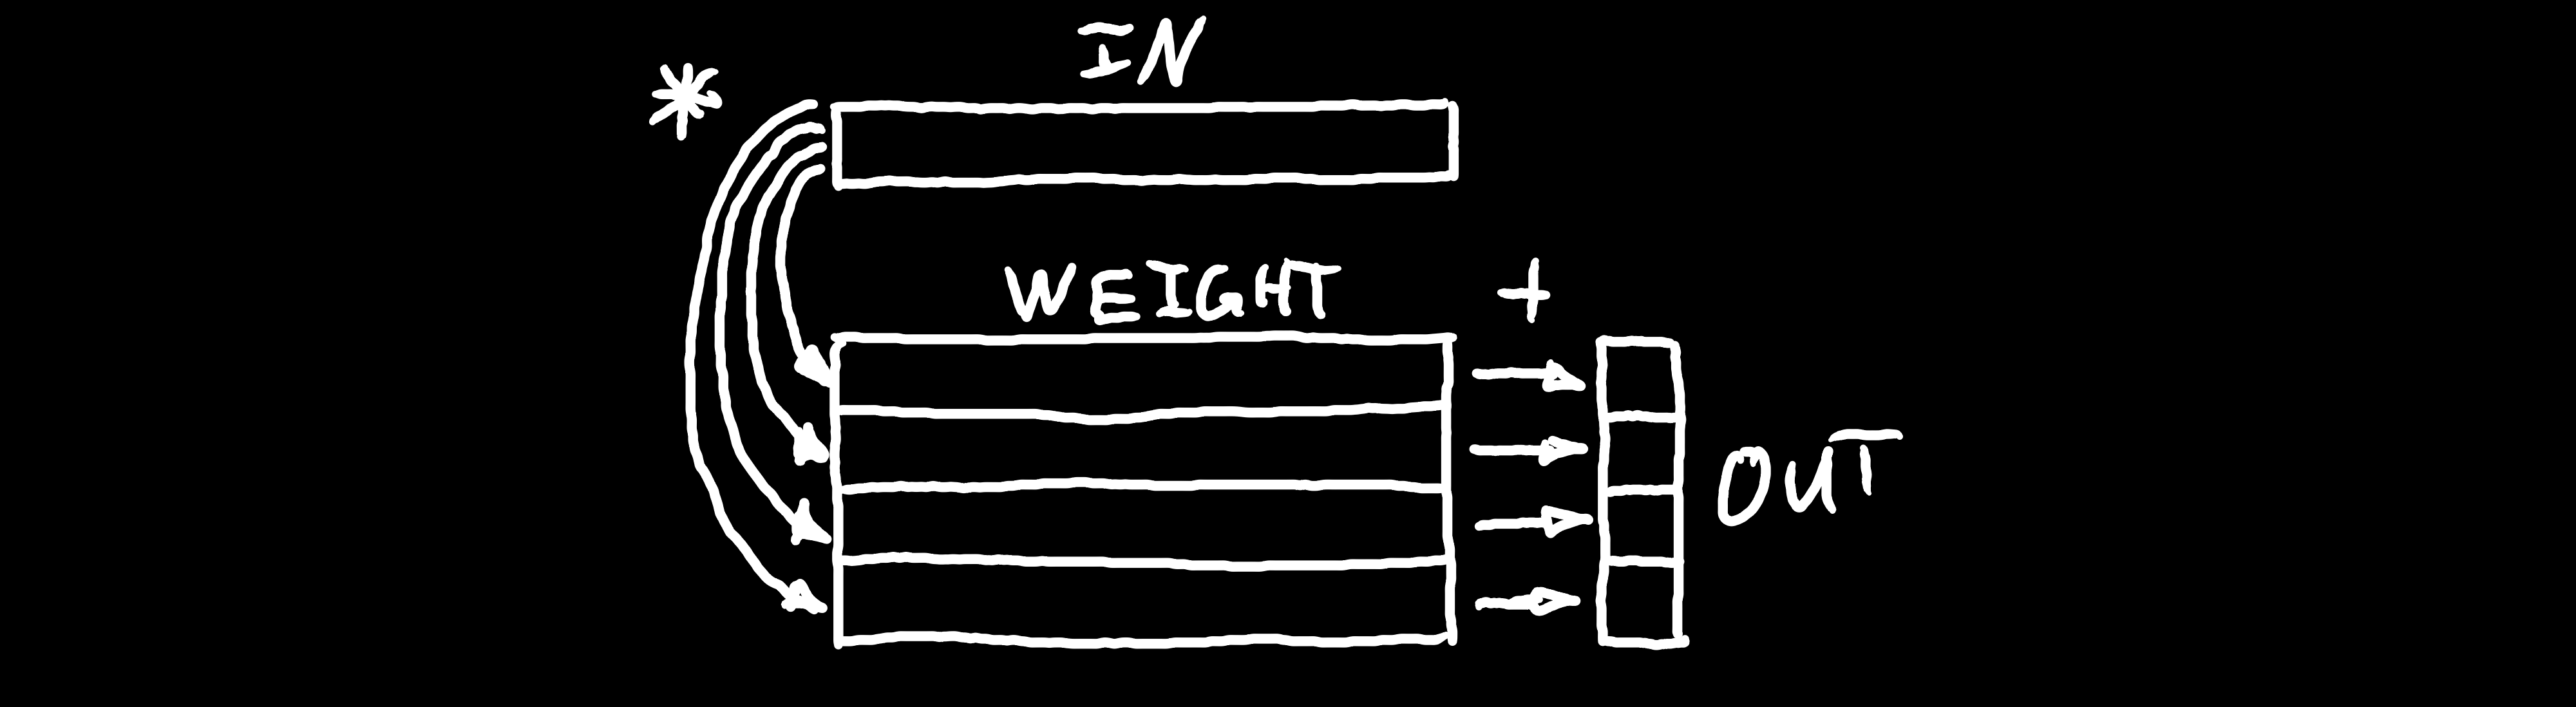 IN
*
WEIGHT +
OUT